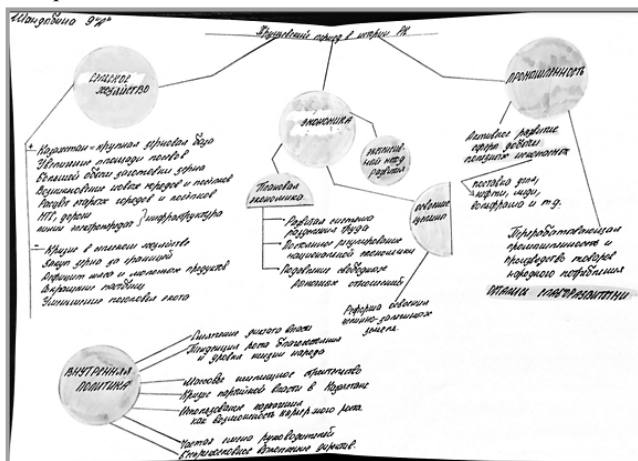 Шандобина 9"А"
Хрущевский период в истории РК
СЕЛЬСКОЕ ХОЗЯЙСТВО
+
Казахстан - крупная зерновая база
Увеличение площади посевов
Большой объем заготовки зерна
Возникновение новых городов и посёлков
Расцвет старых городов и посёлков
МТС, дороги
линии электропередач
инфраструктура
-
Кризис в сельском хозяйстве
Закуп зерна за границей
Дефицит мяса и молочных продуктов
Сокращение пастбищ
Уменьшение поголовья скота
ЭКОНОМИКА
Плановая экономика
Развитая система разделения труда
Постоянное регулирование национальной экономики
Подавление свободных рыночных отношений
освоение целины
Реформа освоения целинно-залежных земель
ПРОМЫШЛЕННОСТЬ
Активное развитие
сфера добычи
полезных ископаемых
поставка угля,
нефти, меди,
вольфрама и т.д.
Перерабатывающая
промышленность и
производство товаров
народного потребления
ВНУТРЕННЯЯ ПОЛИТИКА
Тенденция роста благосостояния
и уровня жизни народа
Массовое жилищное строительство
Кризис партийной власти в Казахстане
Использование назначения
как возможность карьерного роста
Частая смена руководителей